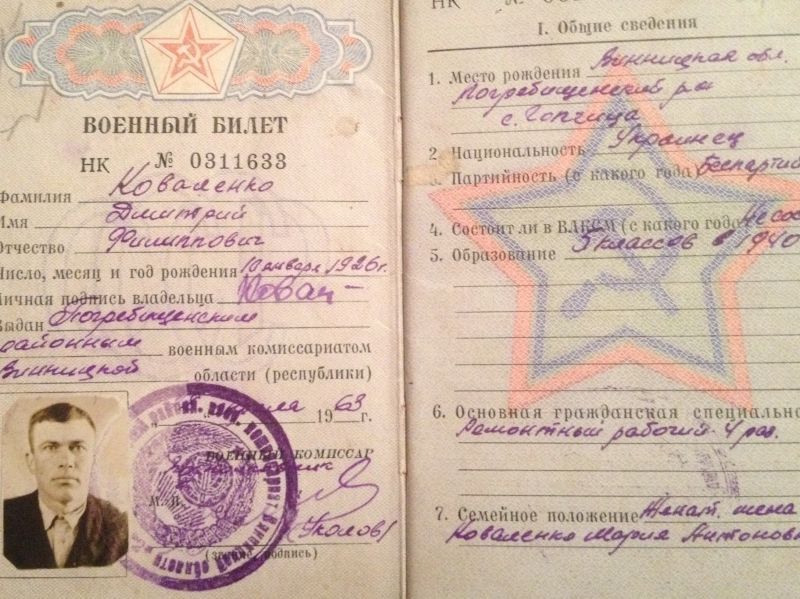 ВОЕННЫЙ БИЛЕТ
НК № 0311633
Фамилия Коваленко
Имя Дмитрий
Отчество Филиппович
Число, месяц и год рождения 10 января 1926г.
Личная подпись владельца Ковал
Выдан Погребищенским
районным военным комиссариатом
Винницкой области (республики)
19 63 г.
ВОЕННЫЙ КОМИССАР
М. П.
(Уколов)
(звание, подпись)
НК №
I. Общие сведения
1. Место рождения Винницкая обл.
Погребищенский р-н
с. Гопчица
2. Национальность Украинец
3. Партийность (с какого года) Беспартий
4. Состоит ли в ВЛКСМ (с какого года) Не сос
5. Образование 5 классов в 1940
6. Основная гражданская специально
Ремонтный рабочий 4 раз.
7. Семейное положение Женат. жена
Коваленко Мария Антонов